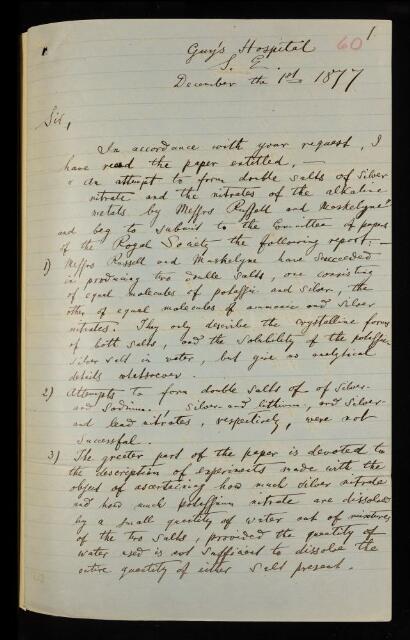 60
1
Guy's Hospital
S. E.
December the 1st 1877
Sir,
In accordance with your request, I
have read the paper entitled, —
"An attempt to form double salts of Silver
nitrate and the nitrates of the alkaline
metals by Messrs Russell and Maskelyne"
and beg to submit to the Committee of papers
of the Royal Society the following report: —
1) Messrs Russell and Maskelyne have succeeded
in producing two double salts, one consisting
of equal molecules of potassic and silver, the
other of equal molecules of ammonic and silver
nitrates. They only describe the crystalline forms
of both salts, and the solubility of the potassic
silver salt in water, but give no analytical
details whatsoever.
2) Attempts to form double salts of of silver-
and sodium-, silver- and lithium-, and silver-
and lead nitrates, respectively, were not
successful.
3) The greater part of the paper is devoted to
the description of experiments made with the
object of ascertaining how much silver nitrate
and how much potassium nitrate are dissolved
by a small quantity of water out of mixtures
of the two salts, provided the quantity of
water used is not sufficient to dissolve the
entire quantity of either salt present.